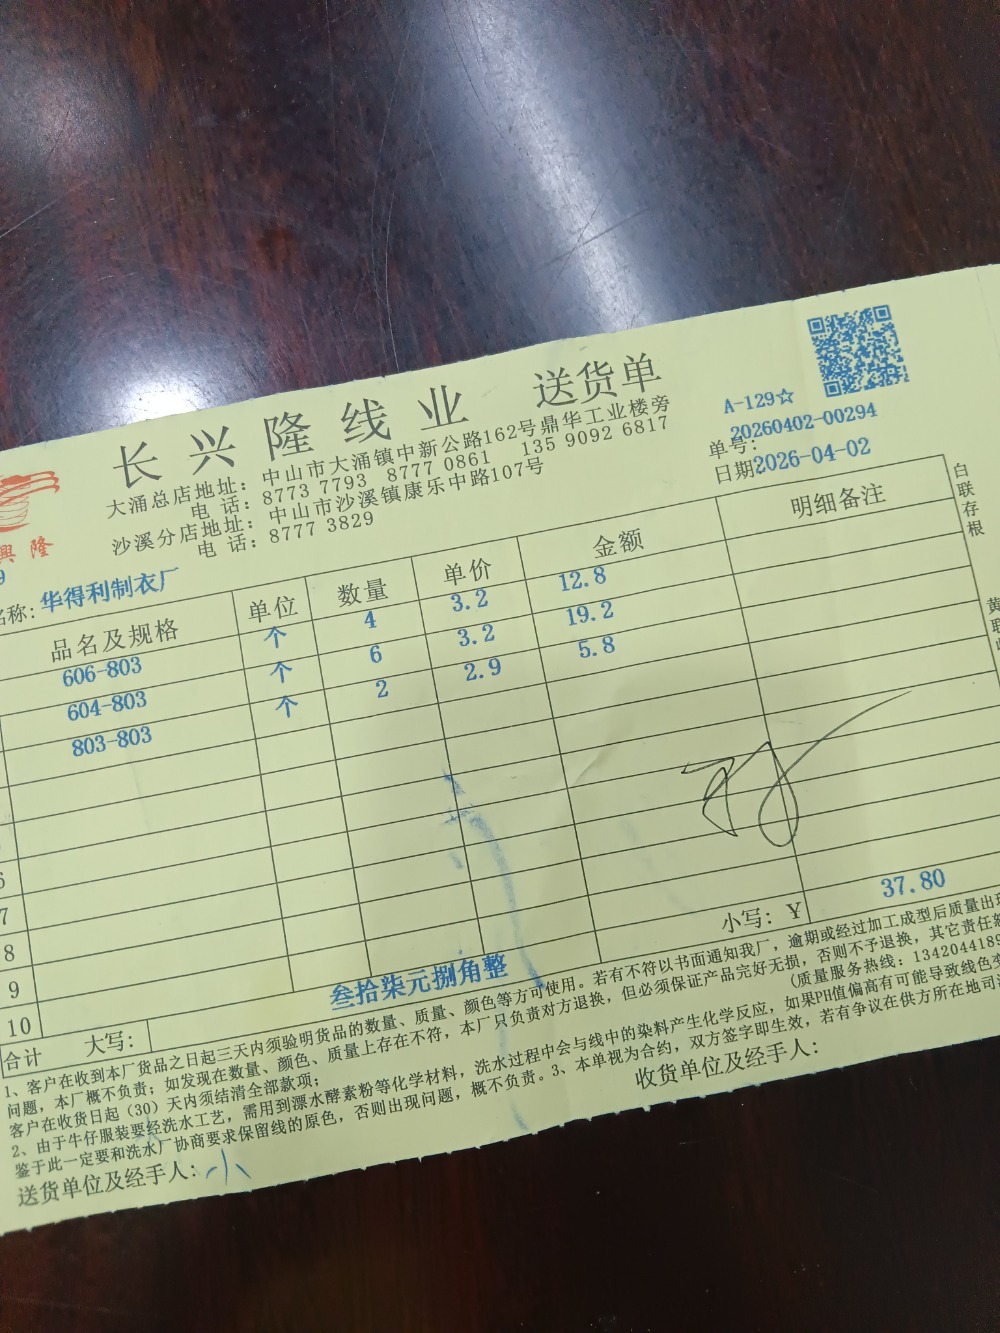 长兴隆线业 送货单
大涌总店地址：中山市大涌镇中新公路162号鼎华工业楼旁
电 话：8773 7793 8777 0861 135 9092 6817
沙溪分店地址：中山市沙溪镇康乐中路107号
电 话：8777 3829
A-129☆
单号：20260402-00294
日期2026-04-02
興 隆
9
名称：华得利制衣厂
品名及规格 单位 数量 单价 金额 明细备注
606-803 个 4 3.2 12.8
604-803 个 6 3.2 19.2
803-803 个 2 2.9 5.8
6
7
8
9
10
合计 大写： 叁拾柒元捌角整 小写：Y 37.80
白联存根
黄联
1、客户在收到本厂货品之日起三天内须验明货品的数量、质量、颜色等方可使用。若有不符以书面通知我厂，逾期或经过加工成型后质量出现
问题，本厂概不负责；如发现在数量、颜色、质量上存在不符，本厂只负责对方退换，但必须保证产品完好无损，否则不予退换，其它责任
客户在收货日起（30）天内须结清全部款项； (质量服务热线：1342044189
2、由于牛仔服装要经洗水工艺，需用到漂水酵素粉等化学材料，洗水过程中会与线中的染料产生化学反应，如果PH值偏高有可能导致线色变
鉴于此一定要和洗水厂协商要求保留线的原色，否则出现问题，概不负责。3、本单视为合约，双方签字即生效，若有争议在供方所在地司
送货单位及经手人：小 收货单位及经手人：